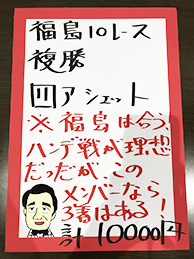 福島10レース
複勝
四アシェット
※福島は合う、
ハンデ戦が理想
だったが、この
メンバーなら
3着はある!
計10000円